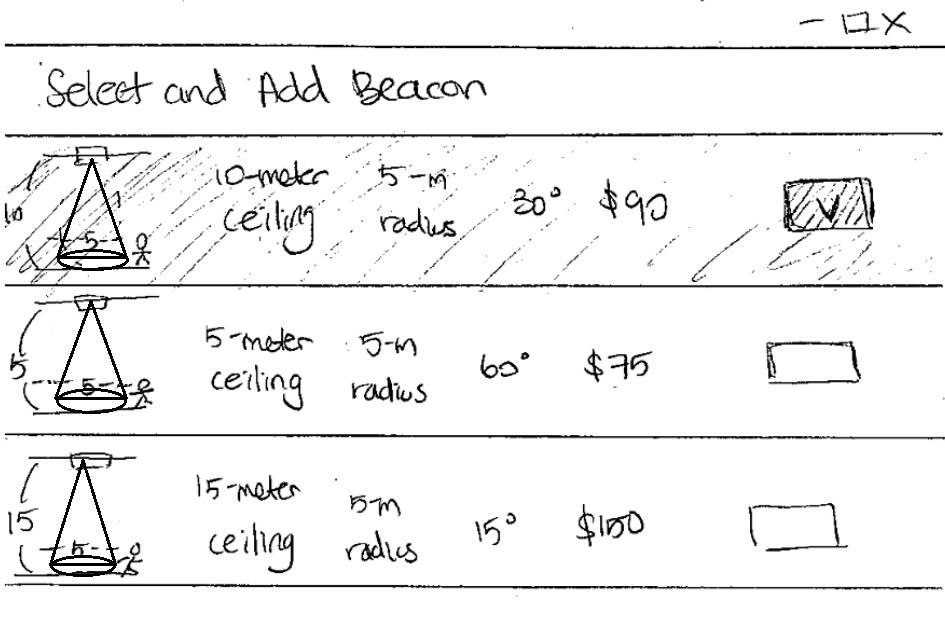 Select and Add Beacon
10-meter ceiling 5-m radius 30° $90
10
5
5-meter ceiling 5-m radius 60° $75
5
5
15-meter ceiling 5-m radius 15° $150
15
5